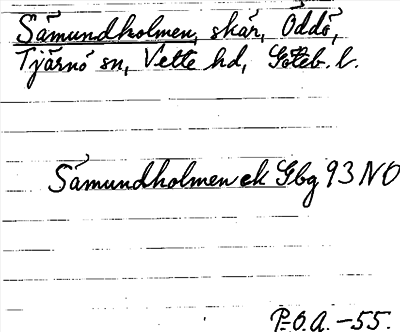 Sämundholmen, skär, Öddö,
Tjärnö sn, Vette hd, Göteb. l.
Sämundholmen ek Gbg 93 NO
P.O.A. -55.